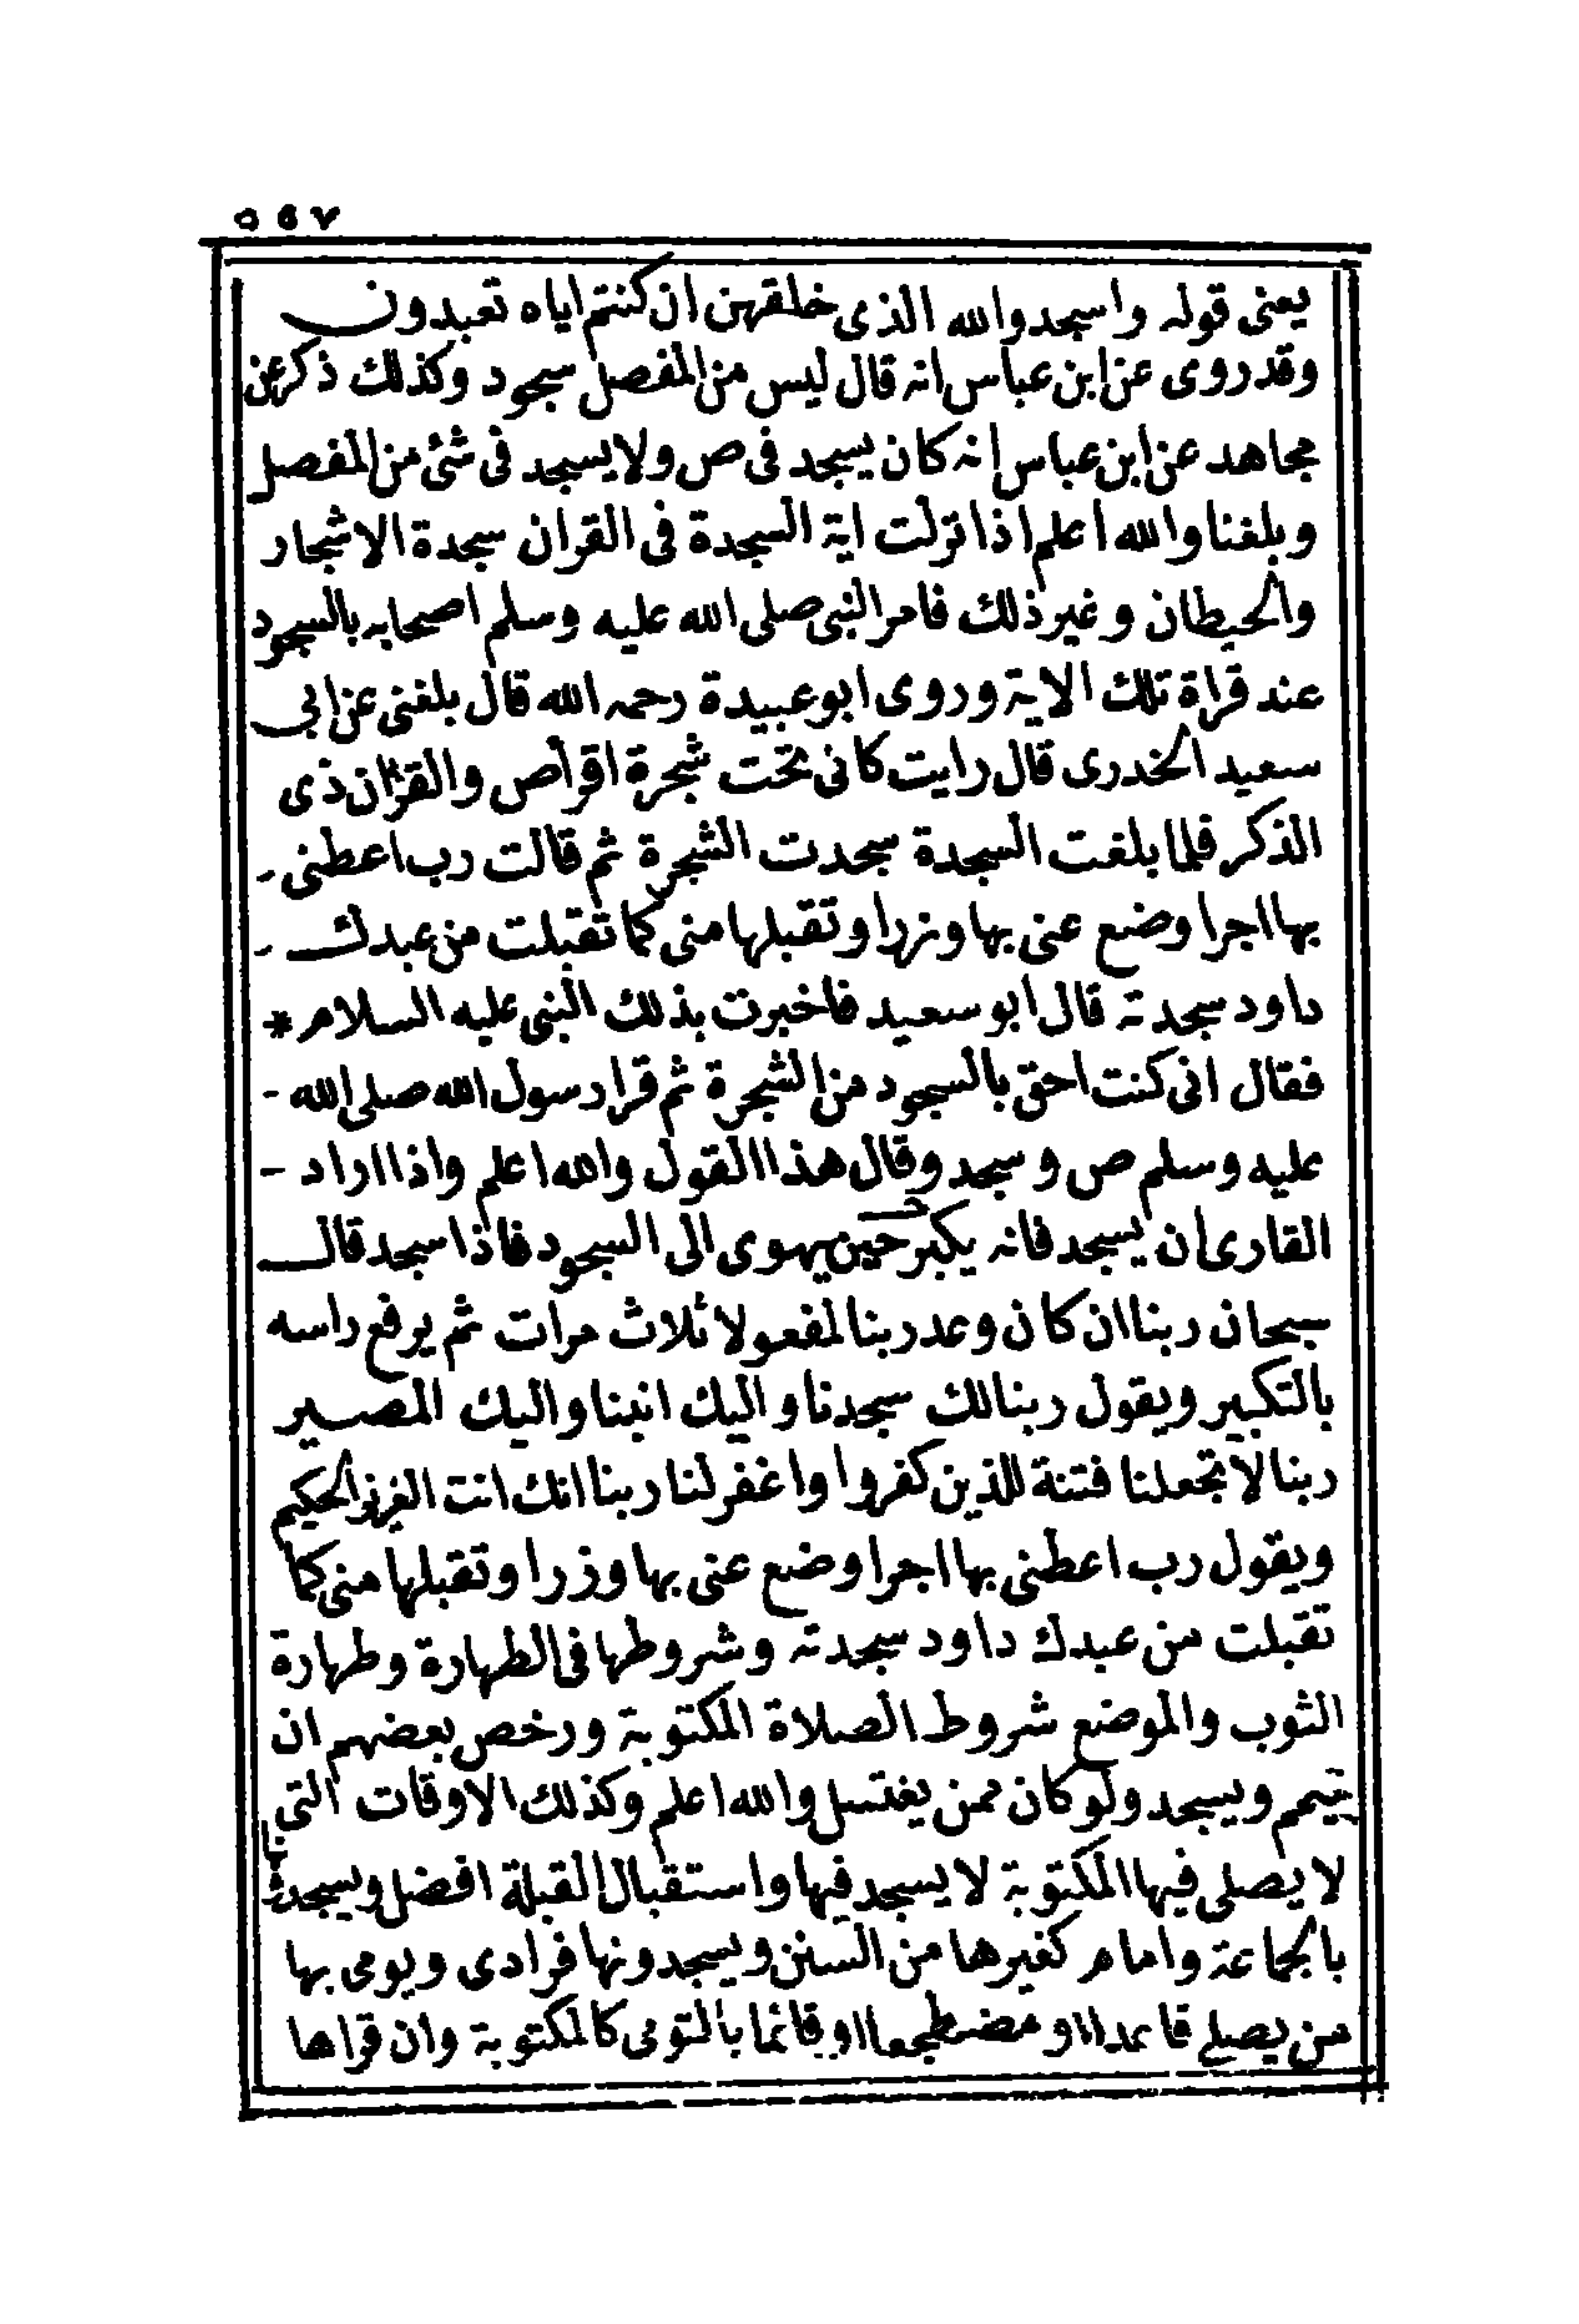 ٥٥٧
يعنى قوله واسجدوا لله الذى خلقهن ان كنتم اياه تعبدون
وقد روى عن ابن عباس انه قال ليس من المفصل سجود وكذلك ذكر عن
مجاهد عن ابن عباس انه كان يسجد فى ص ولا يسجد فى شئ من المفصل
وبلغنا والله اعلم اذا نزلت اية السجدة فى القران سجدة الاشجار
والحيطان وغير ذلك فامر النبى صلى الله عليه وسلم اصحابه بالسجود
عند قراة تلك الاية وروى ابو عبيدة رحمه الله قال بلغنى عن ابى
سعيد الخدرى قال رايت كانى تحت شجرة اقرأ ص والقرآن ذى
الذكر فلما بلغت السجدة سجدت الشجرة ثم قالت رب اعطنى -
بها اجرا وضع عنى بها وزرا وتقبلها منى كما تقبلت من عبدك -
داود سجدته قال ابو سعيد فاخبرت بذلك النبى عليه السلام *
فقال انى كنت احق بالسجود من الشجرة ثم قرا رسول الله صلى الله -
عليه وسلم ص وسجد وقال هذا القول والله اعلم واذا اراد -
القارى أن يسجد فانه يكبر حين يهوى الى السجود فاذا سجد قال
سبحان ربنا ان كان وعد ربنا لمفعولا ثلاث مرات ثم يرفع راسه
بالتكبير ويقول ربنا لك سجدنا واليك انبنا واليك المصير
ربنا لا تجعلنا فتنة للذين كفروا واغفر لنا ربنا انك انت العزيز الحكيم
ويقول رب اعطنى بها اجرا وضع عنى بها وزرا وتقبلها منى كما
تقبلت من عبدك داود سجدته وشروطها فى الطهارة وطهارة
الثوب والموضع شروط الصلاة المكتوبة ورخص بعضهم ان
يتيمم ويسجد ولو كان ممن يغتسل والله اعلم وكذلك الاوقات التى
لا يصلى فيها المكتوبة لا يسجد فيها واستقبال القبلة افضل ويسجد
بالجماعة وامام كغيرها من السنن ويسجدونها فرادى ويومى بها
من يصلى قاعدا او مضطجعا او قائما بالتومى كالمكتوبة وان قراها